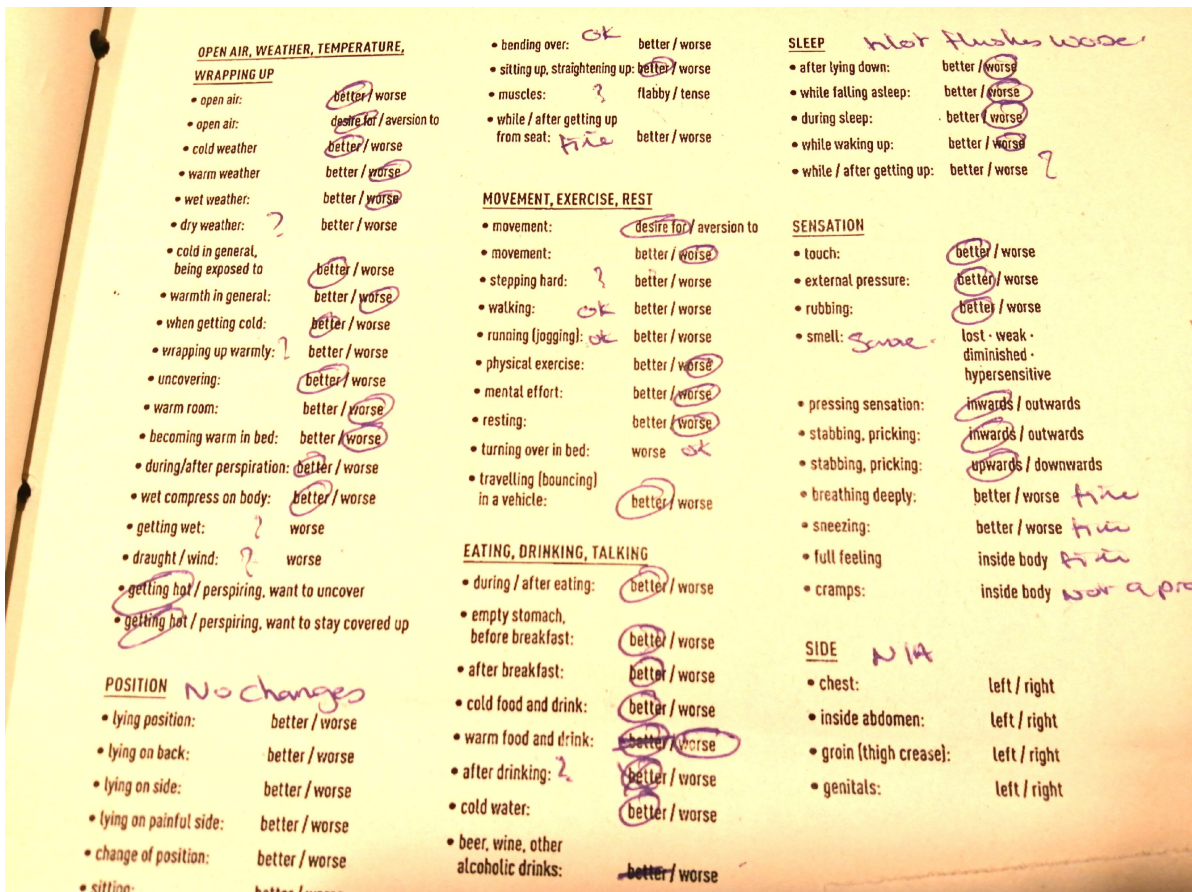 OPEN AIR, WEATHER, TEMPERATURE,
WRAPPING UP
• open air: better / worse
• open air: desire for / aversion to
• cold weather better / worse
• warm weather better / worse
• wet weather: better / worse
• dry weather: ? better / worse
• cold in general,
being exposed to better / worse
• warmth in general: better / worse
• when getting cold: better / worse
• wrapping up warmly: ? better / worse
• uncovering: better / worse
• warm room: better / worse
• becoming warm in bed: better / worse
• during/after perspiration: better / worse
• wet compress on body: better / worse
• getting wet: ? worse
• draught / wind: ? worse
• getting hot / perspiring, want to uncover
• getting hot / perspiring, want to stay covered up
POSITION No changes
• lying position: better / worse
• lying on back: better / worse
• lying on side: better / worse
• lying on painful side: better / worse
• change of position: better / worse
• sitting: better / worse
• bending over: ok better / worse
• sitting up, straightening up: better / worse
• muscles: ? flabby / tense
• while / after getting up
from seat: fine better / worse
MOVEMENT, EXERCISE, REST
• movement: desire for / aversion to
• movement: better / worse
• stepping hard: ? better / worse
• walking: ok better / worse
• running (jogging): ok better / worse
• physical exercise: better / worse
• mental effort: better / worse
• resting: better / worse
• turning over in bed: worse ok
• travelling (bouncing)
in a vehicle: better / worse
EATING, DRINKING, TALKING
• during / after eating: better / worse
• empty stomach,
before breakfast: better / worse
• after breakfast: better / worse
• cold food and drink: better / worse
• warm food and drink: better / worse
• after drinking: ? better / worse
• cold water: better / worse
• beer, wine, other
alcoholic drinks: better / worse
SLEEP Hot flushes worse.
• after lying down: better / worse
• while falling asleep: better / worse
• during sleep: better / worse
• while waking up: better / worse
• while / after getting up: better / worse ?
SENSATION
• touch: better / worse
• external pressure: better / worse
• rubbing: better / worse
• smell: Same. lost · weak ·
diminished ·
hypersensitive
• pressing sensation: inwards / outwards
• stabbing, pricking: inwards / outwards
• stabbing, pricking: upwards / downwards
• breathing deeply: better / worse fine
• sneezing: better / worse fine
• full feeling inside body fine
• cramps: inside body Not a pro
SIDE N/A
• chest: left / right
• inside abdomen: left / right
• groin (thigh crease): left / right
• genitals: left / right